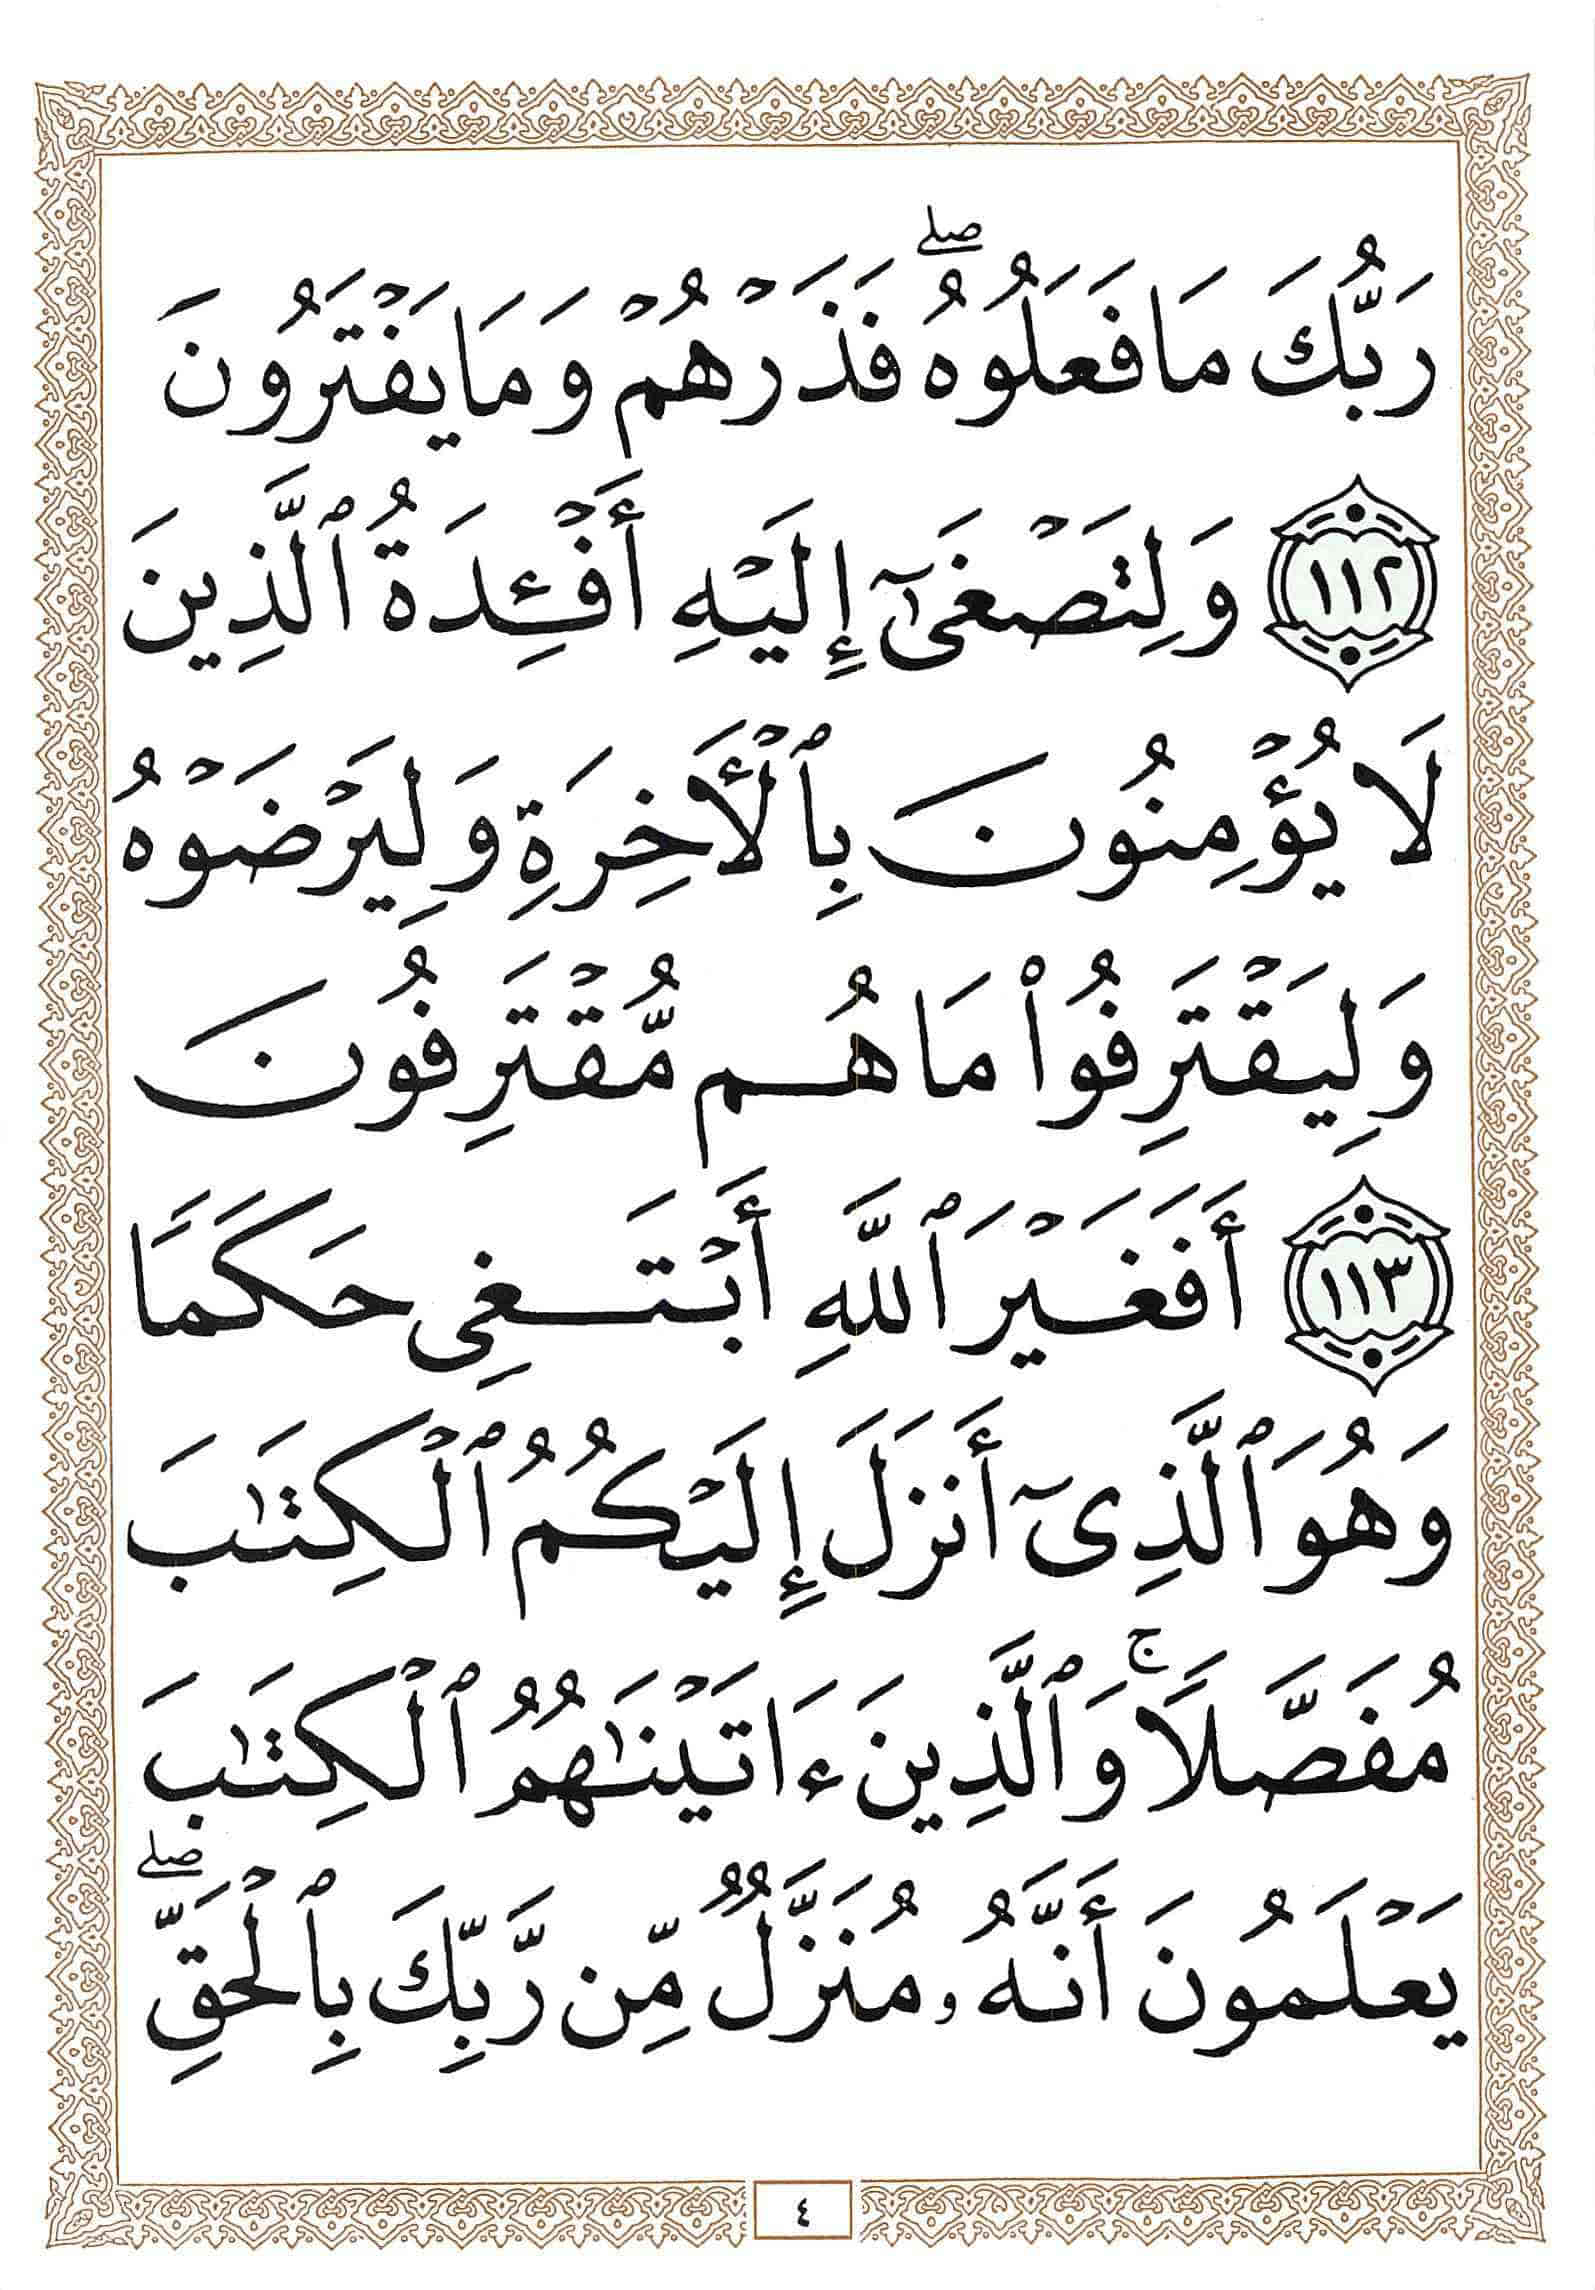 رَبُّكَ مَا فَعَلُوهُ ۖ فَذَرْهُمْ وَمَا يَفْتَرُونَ
﴿١١٢﴾ وَلِتَصْغَىٰٓ إِلَيْهِ أَفْـِٔدَةُ ٱلَّذِينَ
لَا يُؤْمِنُونَ بِٱلْأَخِرَةِ وَلِيَرْضَوْهُ
وَلِيَقْتَرِفُوا۟ مَا هُم مُّقْتَرِفُونَ
﴿١١٣﴾ أَفَغَيْرَ ٱللَّهِ أَبْتَغِى حَكَمًا
وَهُوَ ٱلَّذِىٓ أَنزَلَ إِلَيْكُمُ ٱلْكِتَٰبَ
مُفَصَّلًا ۚ وَٱلَّذِينَ ءَاتَيْنَٰهُمُ ٱلْكِتَٰبَ
يَعْلَمُونَ أَنَّهُۥ مُنَزَّلٌ مِّن رَّبِّكَ بِٱلْحَقِّ ۖ
٤